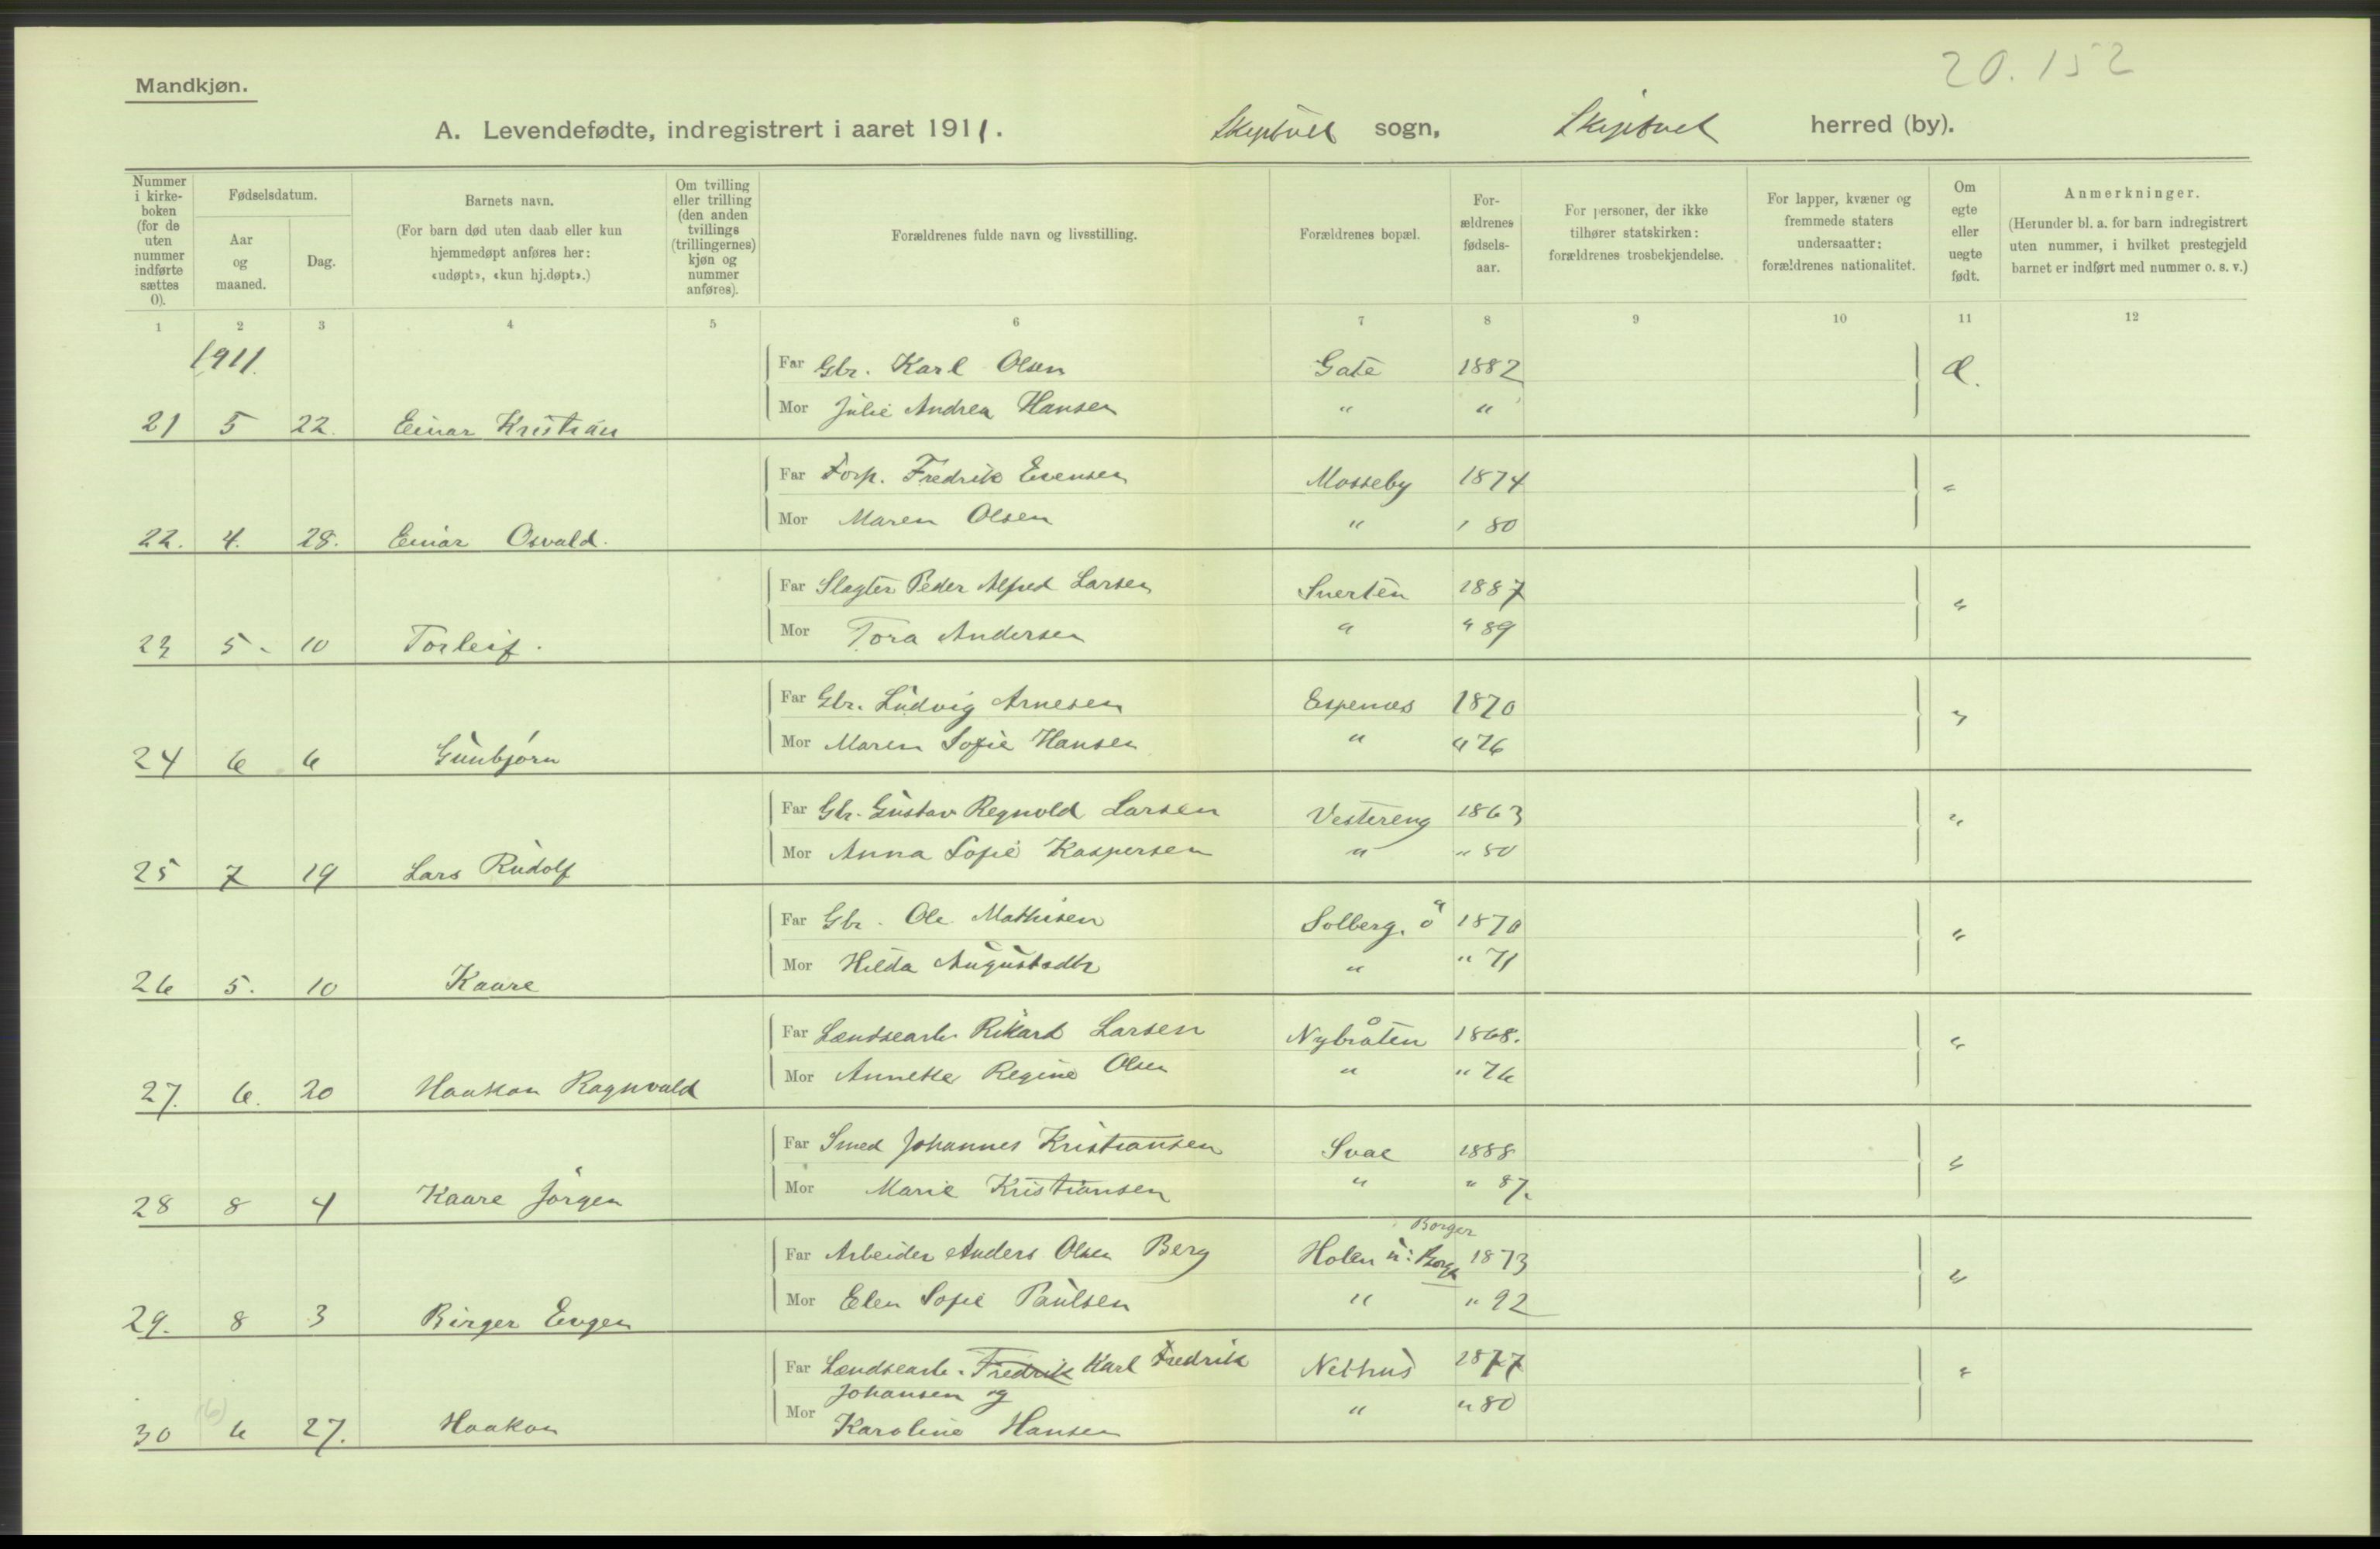 20.152
Mandkjøn.
A. Levendefødte, indregistrert i aaret 1911. Skiptvet sogn, Skiptvet herred (by).
Nummer i kirke- boken (for de uten nummer indførte sættes 0).
Fødselsdatum.
Aar og maaned.
Dag.
Barnets navn.
(For barn død uten daab eller kun hjemmedøpt anføres her: «udøpt», «kun hj.døpt».)
Om tvilling eller trilling (den anden tvillings (trillingernes) kjøn og nummer anføres).
Forældrenes fulde navn og livsstilling.
Forældrenes bopæl.
For- ældrenes fødsels- aar.
For personer, der ikke tilhører statskirken: forældrenes trosbekjendelse.
For lapper, kvæner og fremmede staters undersaatter: forældrenes nationalitet.
Om egte eller uegte født.
Anmerkninger.
(Herunder bl. a. for barn indregistrert uten nummer, i hvilket prestegjeld barnet er indført med nummer o. s. v.)
1 2 3 4 5 6 7 8 9 10 11 12
1911.
Far Gbr. Karl Olsen Gate 1882 æ.
Mor Julie Andrea Hansen " "
21 5 22. Einar Kristian
Far Forp. Fredrik Evensen Mosseby 1874 "
Mor Maren Olsen " " 80
22. 4. 28. Einar Osvald.
Far Slagter Peder Alfred Larsen Snerten 1887 "
Mor Tora Andersen " " 89
23 5 - 10 Torleif.
Far Gbr. Ludvig Arnesen Espenes 1870 "
Mor Maren Sofie Hansen " " 76
24 6 6 Gunbjørn
Far Gbr. Gustav Regnvold Larsen Vestereng 1863 "
Mor Anna Sofie Kaspersen " " 80
25 7 19 Lars Rudolf
Far Gbr. Ole Mathisen Solberg, ö 1870 "
Mor Hilda Augustadtr " " 71
26 5. 10 Kaare
Far Lændsearb. Rikard Larsen Nybråten 1868. "
Mor Annette Regine Olsen " " 76
27. 6. 20 Haakon Ragnvald
Far Smed Johannes Kristiansen Svae 1888 "
Mor Marie Kristiansen " " 87.
28 8 4 Kaare Jørgen
Borger
Far Arbeider Anders Olsen Berg Holen u: Borge 1873 "
Mor Elen Sofie Paulsen " " 92
29. 8 3 Birger Eugen
Far Lændsearb. Fredrik Karl Fredrik Nethus 1877 "
Johansen og
Mor Karoline Hansen " " 80
(6)
30 6 27. Haakon